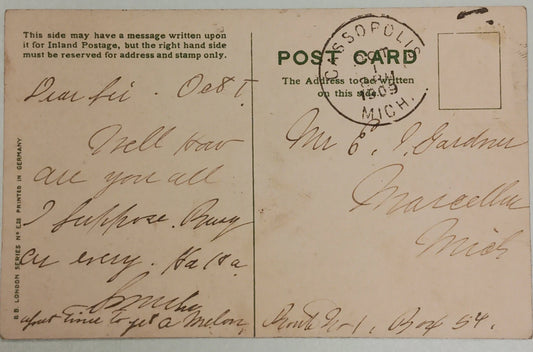 This side may have a message written upon
it for Inland Postage, but the right hand side
must be reserved for address and stamp only.
POST CARD
The Address to be written
on this side.
CASSOPOLIS
OCT
1
1909
MICH.
Dear Sir. Oct 1.
Well How
are you all
I suppose. Busy
as every. Ha Ha.
about time to get a Melon
Mr. J. Gardner
Marcellus
Mich
Route No 1, Box 54.
B.B. LONDON SERIES No E28 PRINTED IN GERMANY